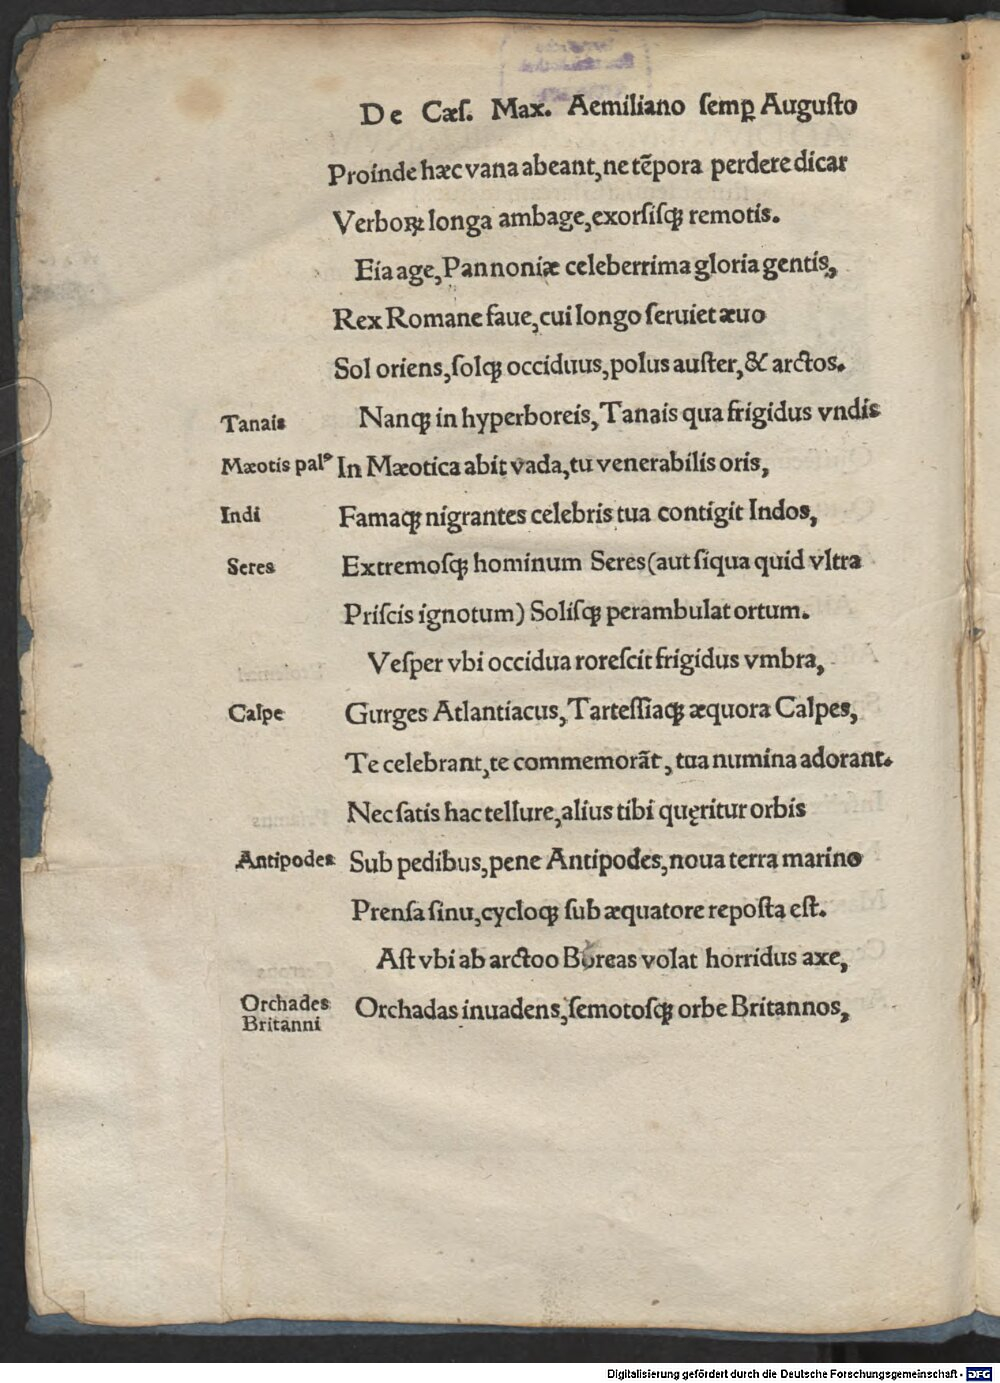 De Cæſ. Max. Aemiliano ſemꝑ Auguſto
Proinde hæc vana abeant, ne tēpora perdere dicar
Verboꝝ longa ambage, exorſiſqꝫ remotis.
Eia age, Pannoniæ celeberrima gloria gentis,
Rex Romane faue, cui longo ſeruiet æuo
Sol oriens, ſolqꝫ occiduus, polus auſter, & arctos.
Tanais Nanqꝫ in hyperboreis, Tanais qua frigidus vndis
Mæotis palꝰ In Mæotica abit vada, tu venerabilis oris,
Indi Famaqꝫ nigrantes celebris tua contigit Indos,
Seres Extremoſqꝫ hominum Seres (aut ſiqua quid vltra
Priſcis ignotum) Soliſqꝫ perambulat ortum.
Veſper vbi occidua roreſcit frigidus vmbra,
Calpe Gurges Atlantiacus, Tarteſſiaqꝫ æquora Calpes,
Te celebrant, te commemorāt, tua numina adorant.
Nec ſatis hac tellure, alius tibi quęritur orbis
Antipodes Sub pedibus, pene Antipodes, noua terra marino
Prenſa ſinu, cycloqꝫ ſub æquatore repoſta eſt.
Aſt vbi ab arctoo Boreas volat horridus axe,
Orchades Orchadas inuadens, ſemotoſqꝫ orbe Britannos,
Britanni
Digitalisierung gefördert durch die Deutsche Forschungsgemeinschaft - DFG